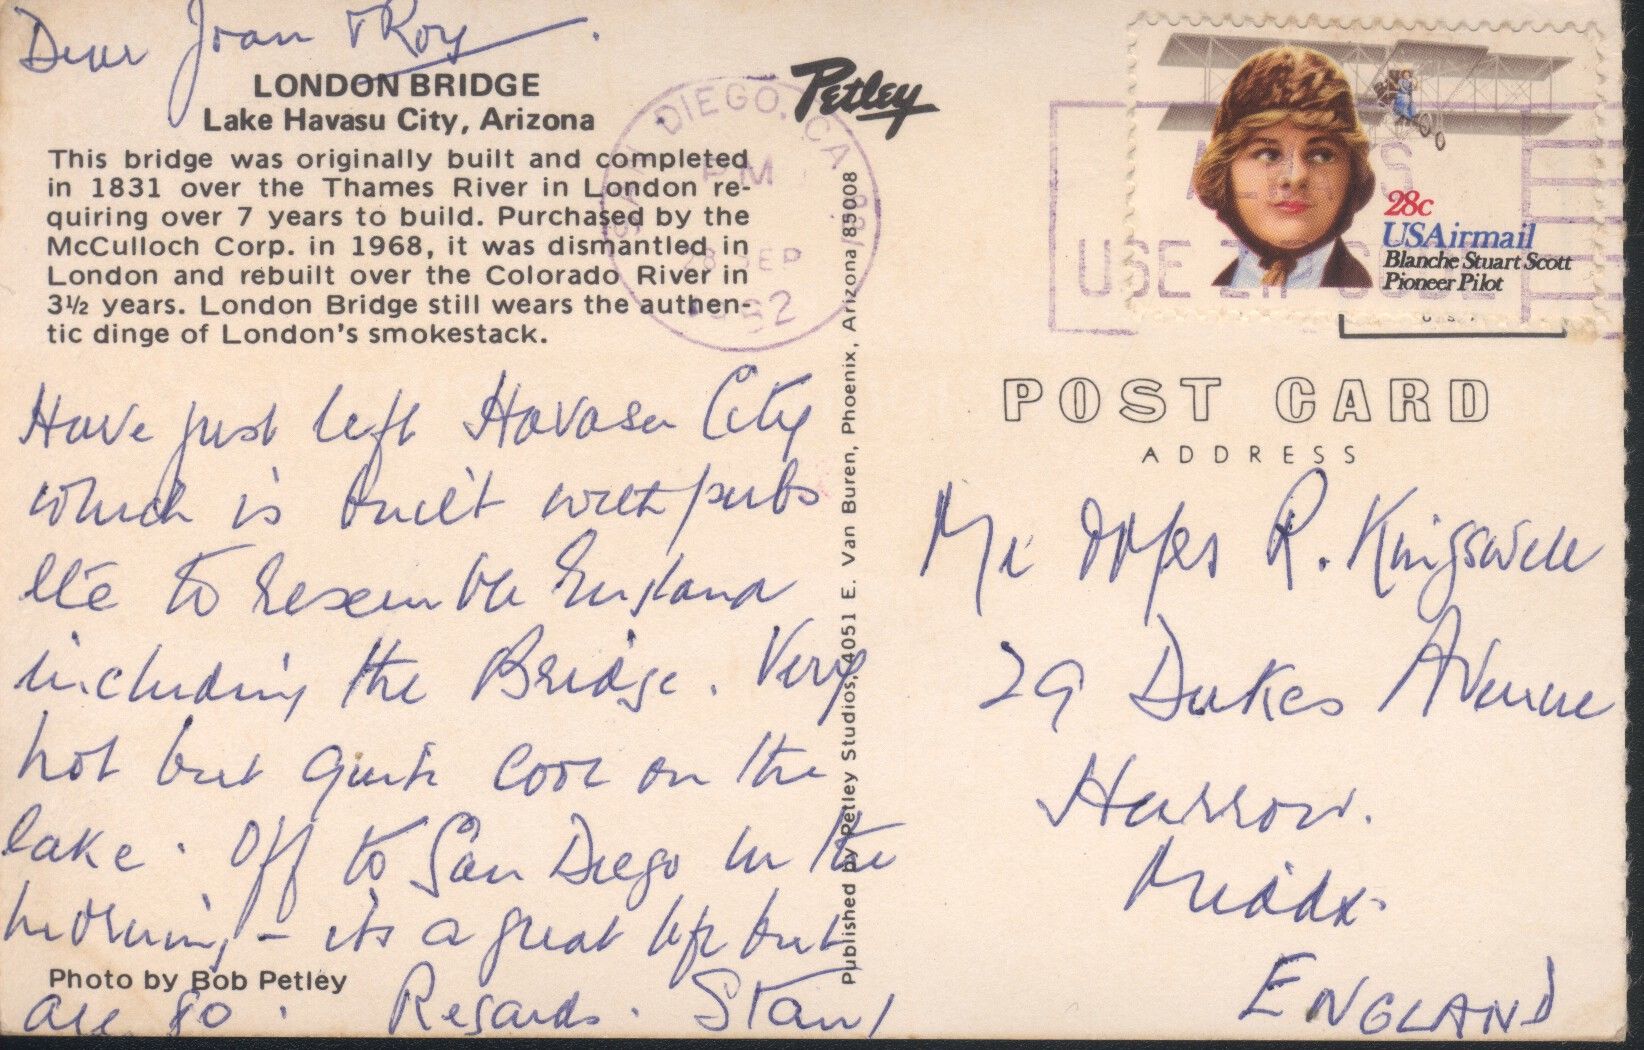 Dear Joan & Roy.
LONDON BRIDGE
Lake Havasu City, Arizona
This bridge was originally built and completed
in 1831 over the Thames River in London re-
quiring over 7 years to build. Purchased by the
McCulloch Corp. in 1968, it was dismantled in
London and rebuilt over the Colorado River in
3½ years. London Bridge still wears the authen-
tic dinge of London's smokestack.
Have just left Havasu City
which is built with pubs
etc to resemble England
including the Bridge. Very
hot but quite cool on the
lake. Off to San Diego in the
morning – its a great life but
Photo by Bob Petley
Regards. Stan
Petley
SAN DIEGO, CA
PM
28 SEP
1982
Published by Petley Studios, 4051 E. Van Buren, Phoenix, Arizona 85008
USE ZIP CODE
28c
USAirmail
Blanche Stuart Scott
Pioneer Pilot
POST CARD
ADDRESS
Mr & Mrs R. Kingswell
29 Dukes Avenue
Harrow.
Middx.
ENGLAND